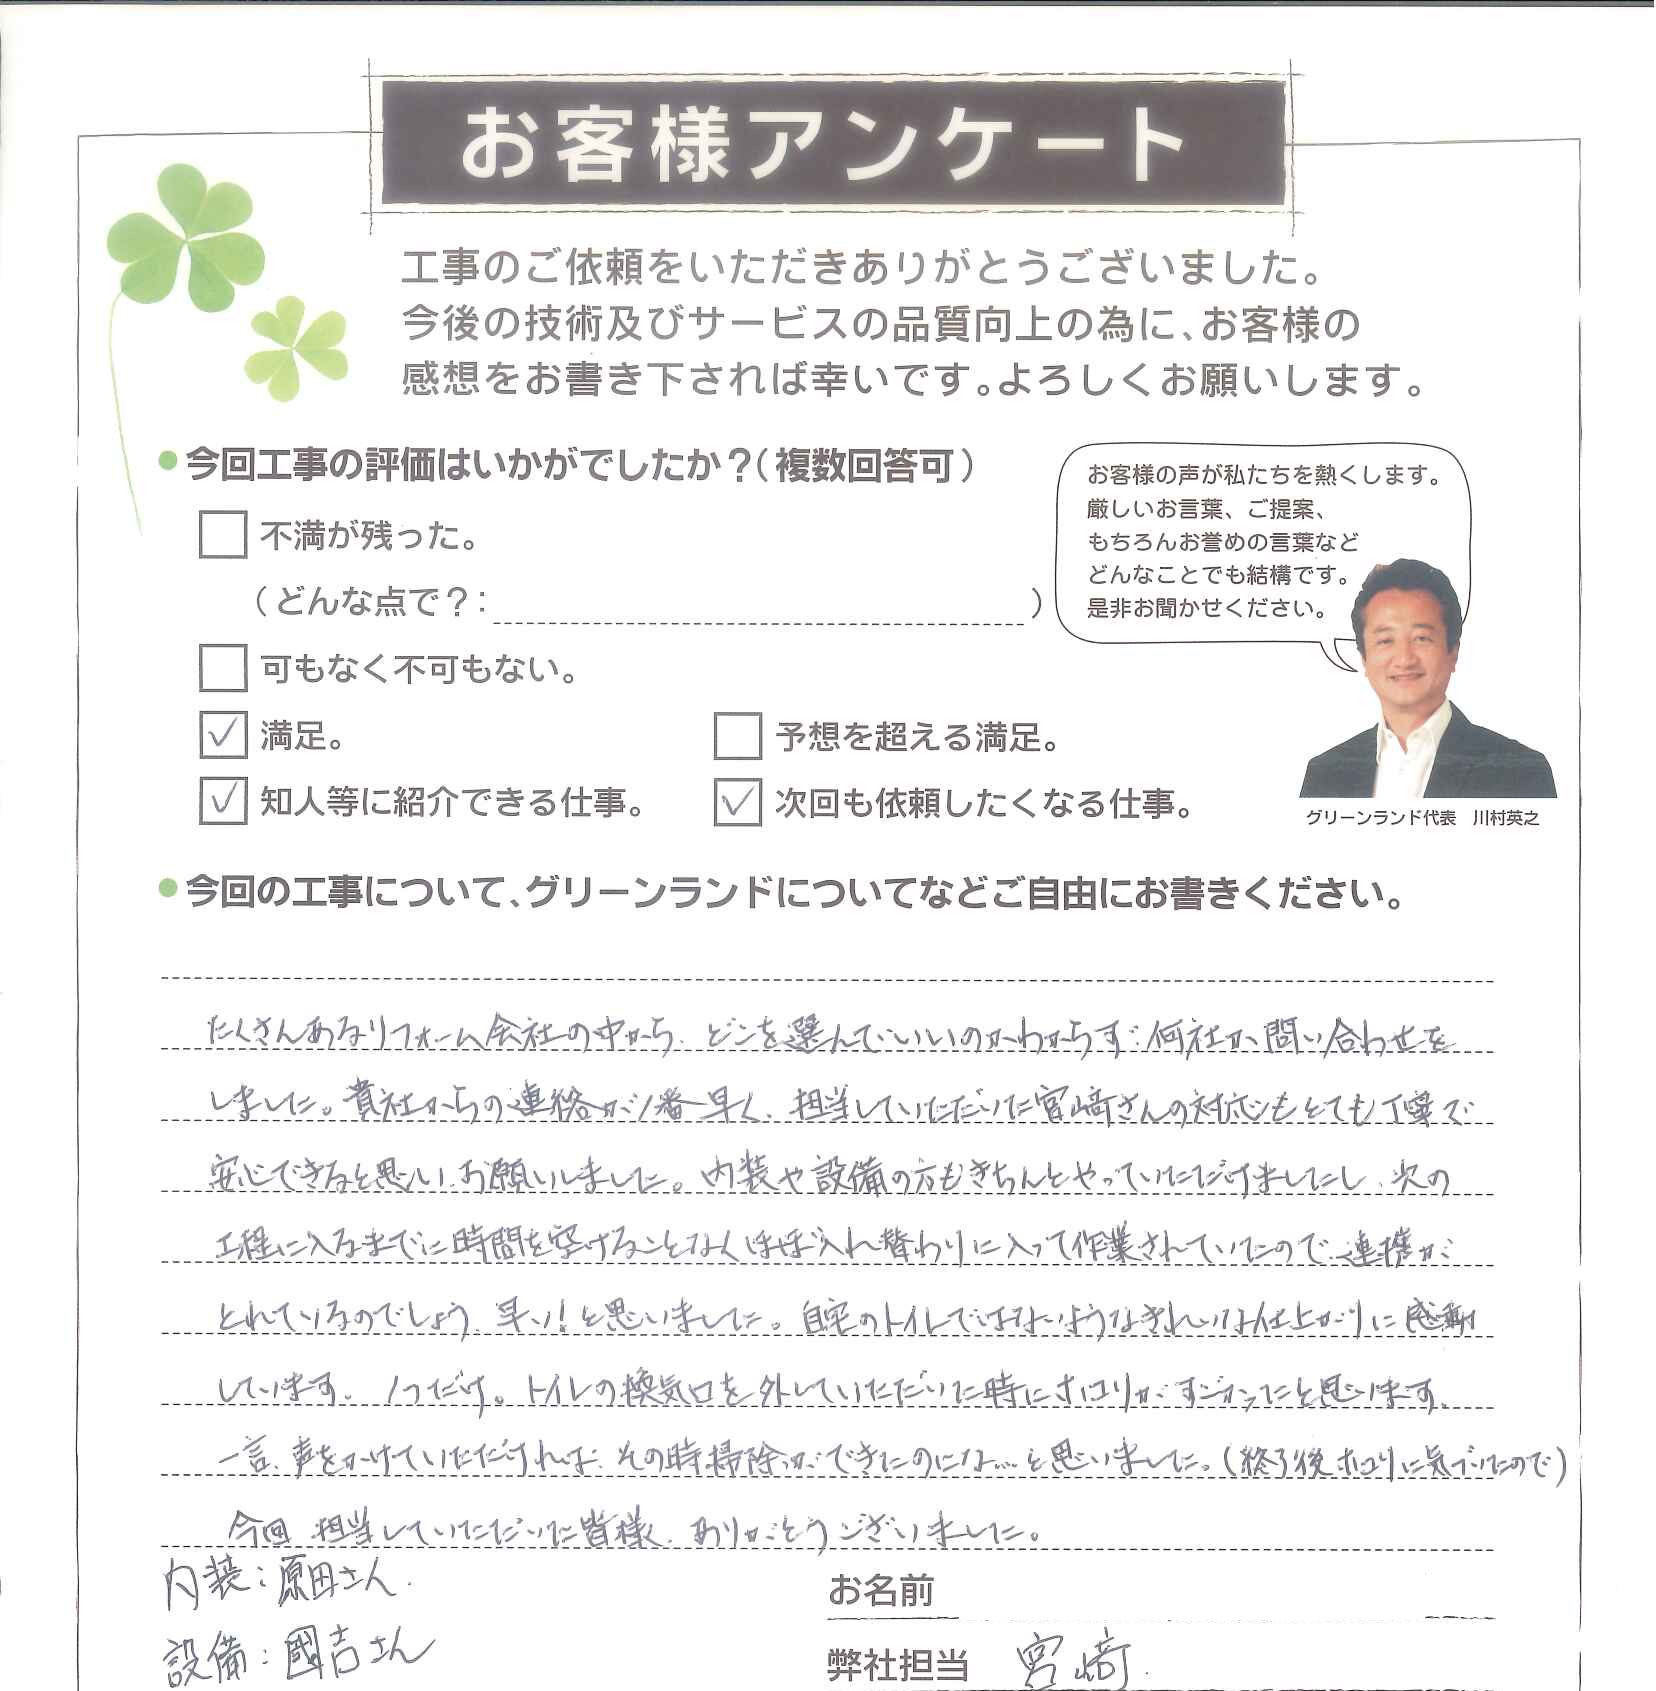 お客様アンケート
工事のご依頼をいただきありがとうございました。
今後の技術及びサービスの品質向上の為に、お客様の
感想をお書き下されば幸いです。よろしくお願いします。
今回工事の評価はいかがでしたか？（複数回答可）
不満が残った。
（どんな点で？： ）
可もなく不可もない。
満足。
予想を超える満足。
知人等に紹介できる仕事。
次回も依頼したくなる仕事。
お客様の声が私たちを熱くします。
厳しいお言葉、ご提案、
もちろんお誉めの言葉など
どんなことでも結構です。
是非お聞かせください。
グリーンランド代表 川村英之
今回の工事について、グリーンランドについてなどご自由にお書きください。
たくさんあるリフォーム会社の中から、どこを選んでいいのかわからず、何社か問い合わせを
しました。貴社からの連絡が1番早く、担当していただいた宮﨑さんの対応もとても丁寧で
安心できると思い、お願いしました。内装や設備の方もきちんとやっていただけましたし、次の
工程に入るまでに時間を空けることなくほぼ入れ替わりに入って作業されていたので、連携が
とれているのでしょう、早い！と思いました。自宅のトイレではないようなきれいな仕上がりに感動
しています。1つだけ。トイレの換気口を外していただいた時にホコリがすごかったと思います。
一言、声をかけていただければ、その時掃除ができたのにな…と思いました。（終了後ホコリに気づいたので）
今回、担当していただいた皆様、ありがとうございました。
内装：原田さん
設備：國吉さん
お名前
弊社担当 宮﨑